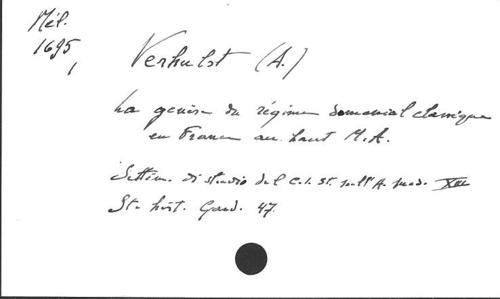 Mél.
1695
1
Verhulst (A.)
La genèse du régime domanial classique
en France au haut M.A.
Settim. di studio del C.i. st. sull'A. med. XIII
St. hist. Gand. 47.